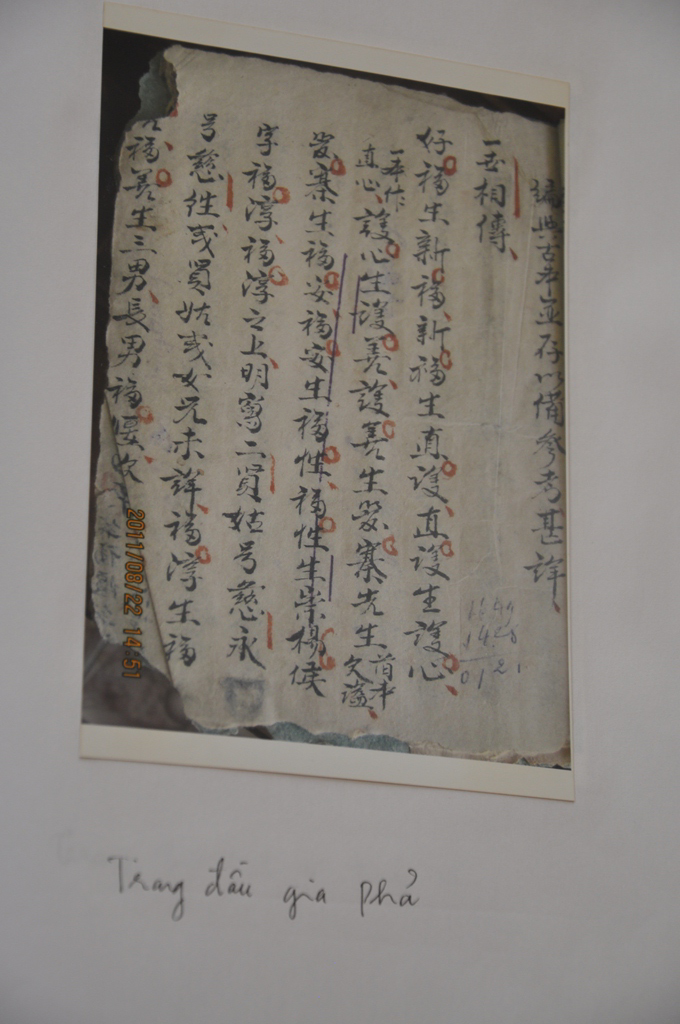 編典古本並存以備參考甚詳
一世相傳
好福生新福新福生直護直護生護心
一本作直心護心生護善護善生愛寨先生首本欠諡
愛寨生福安福安生福性福性生崇楊侯
字福淳福淳之上明寫二買姑号慈永
号慈徃或買姑或女兄未詳福淳生福
福善生三男長男福優次
16.49
14.28
0121
2011/08/22 14:51
Trang đầu gia phả